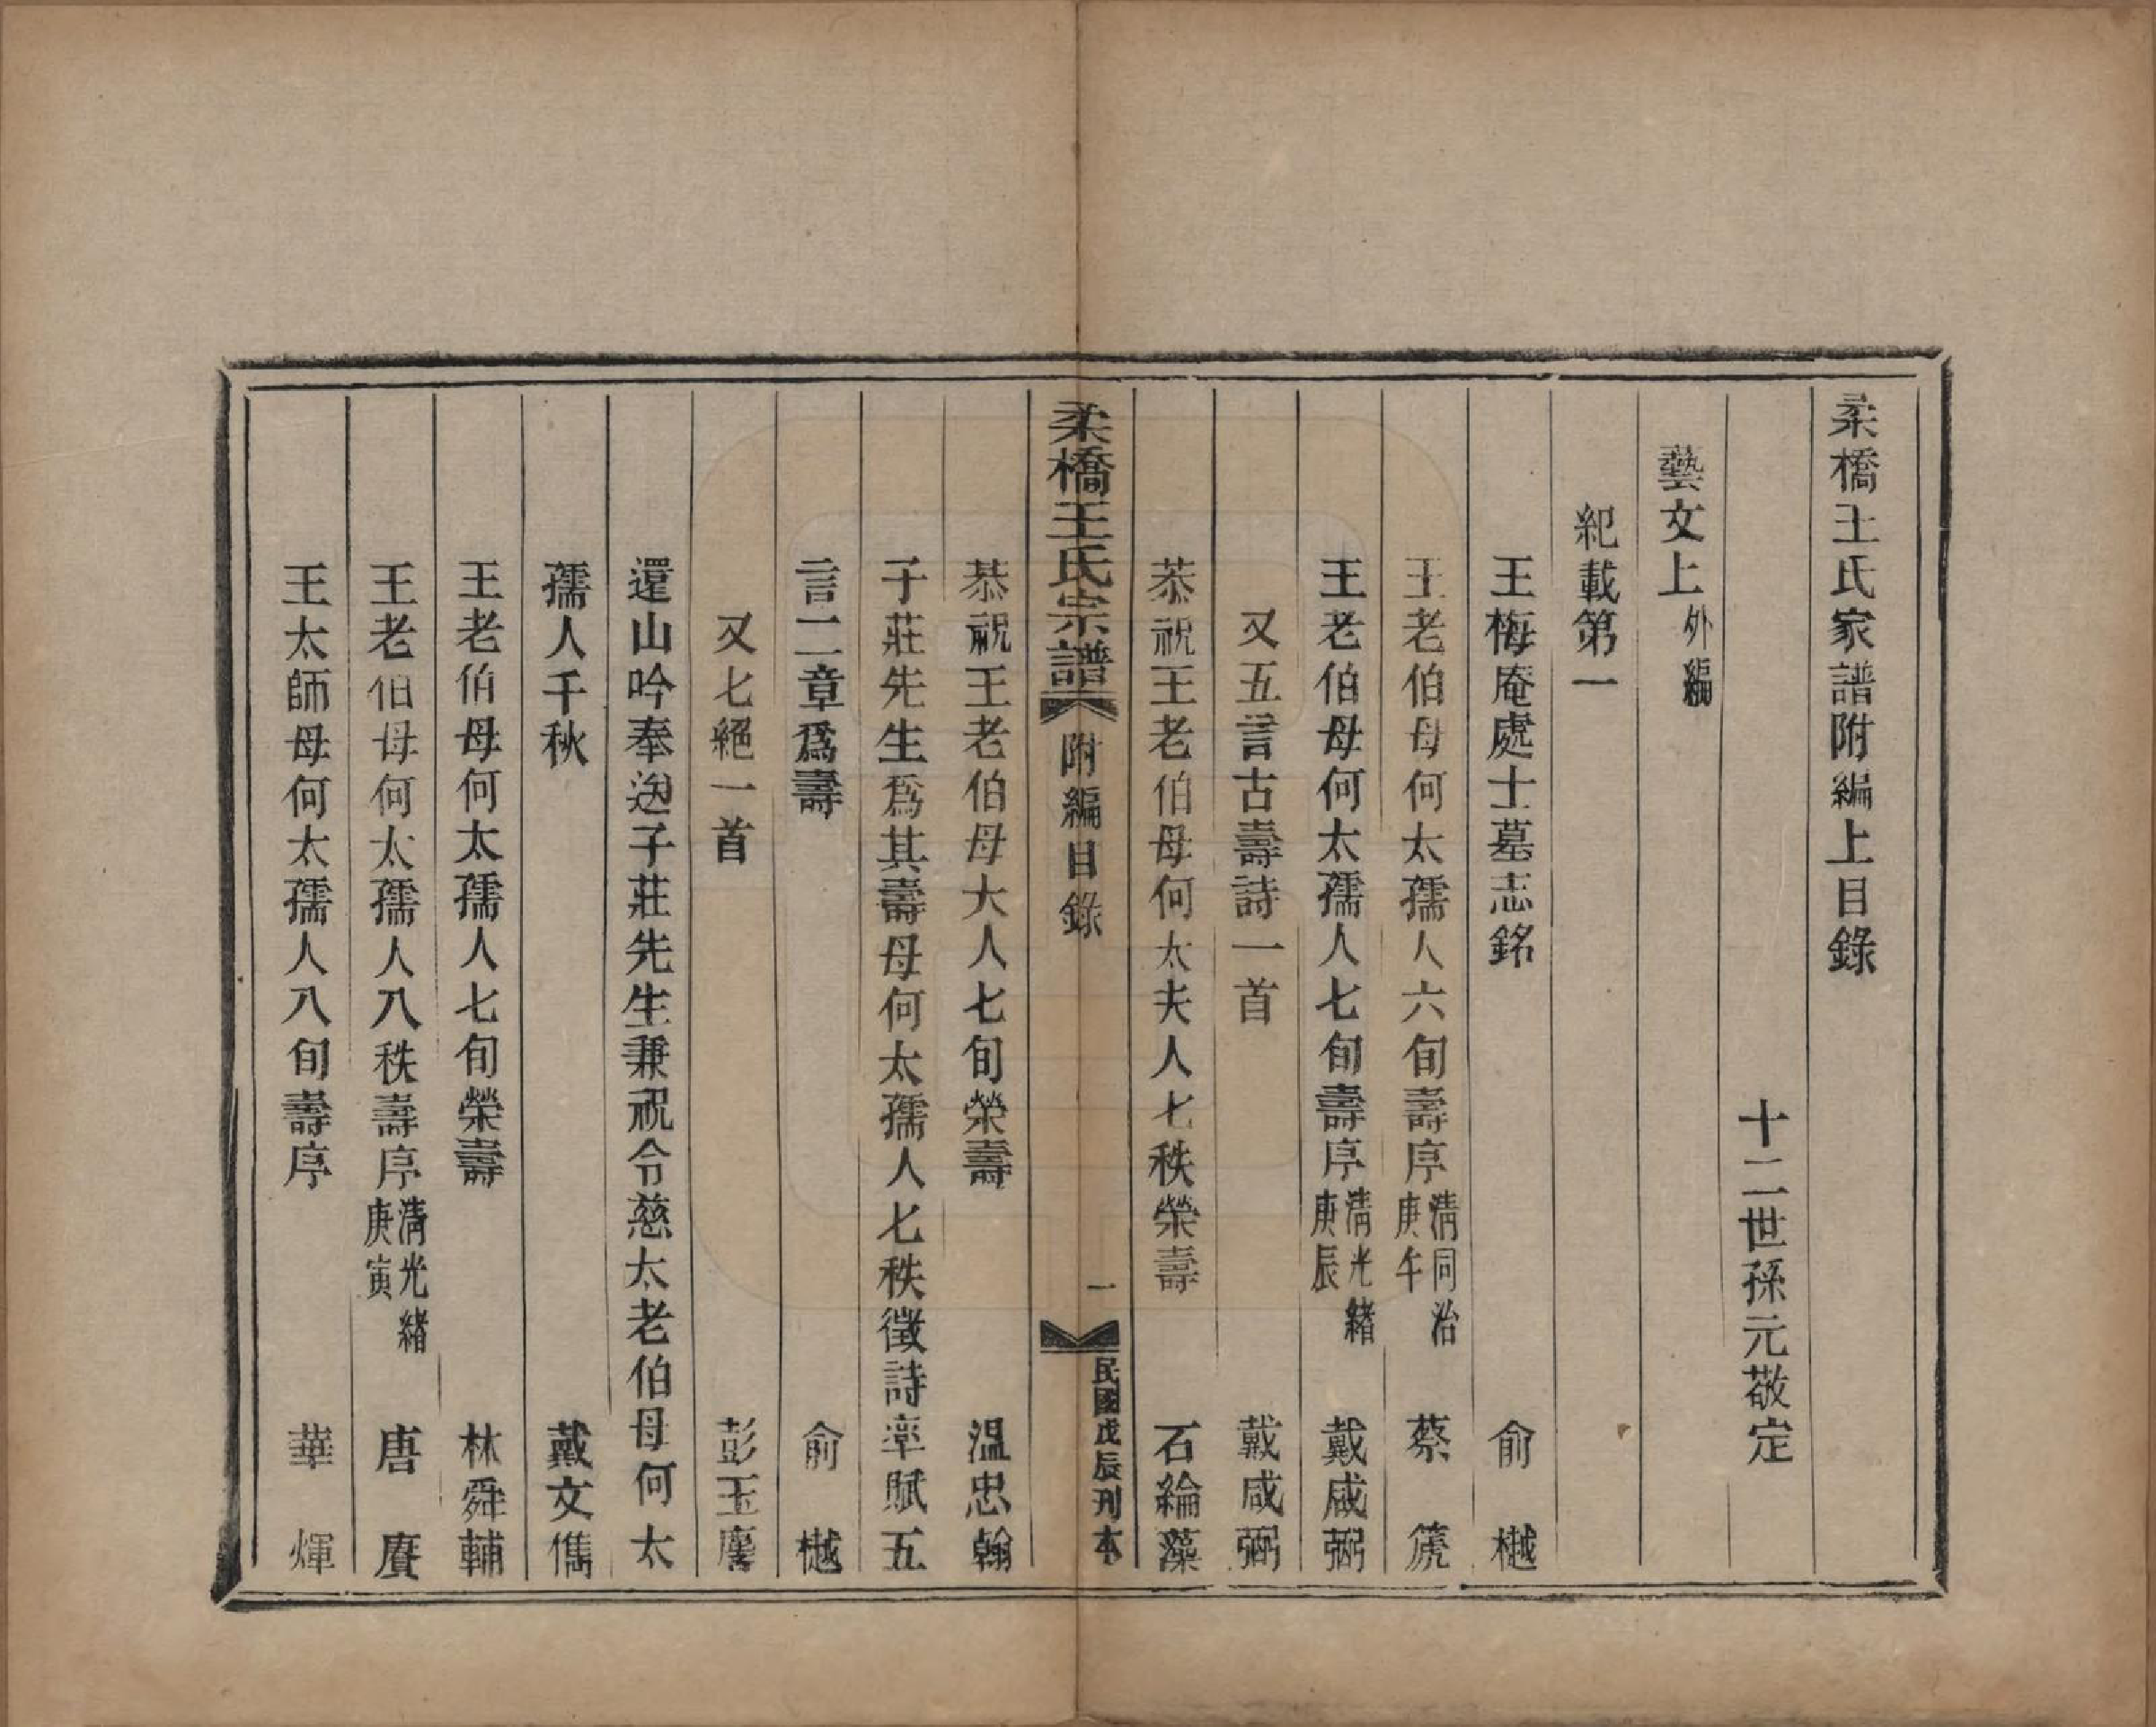 柔橋王氏家譜附編上目錄
十二世孫元敬定
藝文上外編
紀載第一
王梅庵處士墓志銘 俞樾
王老伯母何太孺人六旬壽序清同治庚午 蔡箎
王老伯母何太孺人七旬壽序清光緒庚辰 戴咸弼
又五言古壽詩一首 戴咸弼
恭祝王老伯母何太夫人七秩榮壽 石綸藻
柔橋王氏宗譜 附編目錄 一 民國戊辰刊本
恭祝王老伯母大人七旬榮壽 温忠翰
子莊先生爲其壽母何太孺人七秩徵詩率賦五
言二章爲壽 俞樾
又七絕一首 彭玉麐
還山吟奉送子莊先生兼祝令慈太老伯母何太
孺人千秋 戴文儁
王老伯母何太孺人七旬榮壽 林舜輔
王老伯母何太孺人八秩壽序清光緒庚寅 唐賡
王太師母何太孺人八旬壽序 華煇